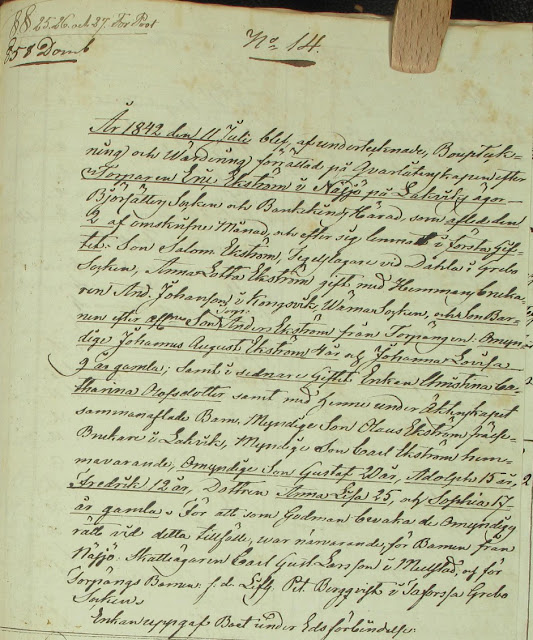 §§ 25. 26. och 27. För Prot
858 Domb
No. 14.
År 1842 den 11 Juli blef af undertecknade, Bouptek-
ning och Wärdering förrättad på Qvarlåtenskapen efter
Torparen Eric Ekström i Näsjö på Lakviks ägor
Björsäters Socken och Bankekinds Härad, som afled den
2 af omskrifne Månad, och efter sig lemnat i första Gif-
te: Son Salom: Ekström, Tegelslagare vid Dahla i Grebo
Socken, Anna Lotta Ekström gift med Hemmans bruka-
ren And. Johanson i Kungsvik, Wärna Socken, och Son Bar-
nen efter Son Anders Ekström från Torpängen: Omyn-
dige Johannes August Ekström 4 år och Johanna Lovisa
9 år gamla; samt i sednare Giftet: Enkan Christina Ca-
tharina Olofsdotter samt med henne under Äktenskapet
sammanaflade Barn, Myndige Son Claus Ekström frälse-
Brukare i Lakvik, Myndige Son Carl Ekström hem-
mavarande, Omyndige Son Gustaf år, Adolph 15 år,
Fredrik 12 år, Dottren Anna Lisa 25, och Sophia 17
år gamla. För att som Godman bevaka de Omyndigas
rätt vid detta tillfälle, war närvarande, för Barnen från
Näsjö Skatteägaren Carl Gust Larsson i Mellstad, och för
Torpängs Barnen f.d. Lifg. Pet. Bergqvist i Säforssa Grebo
Socken.
Enkan uppgaf Boet under Edsförbindelse: